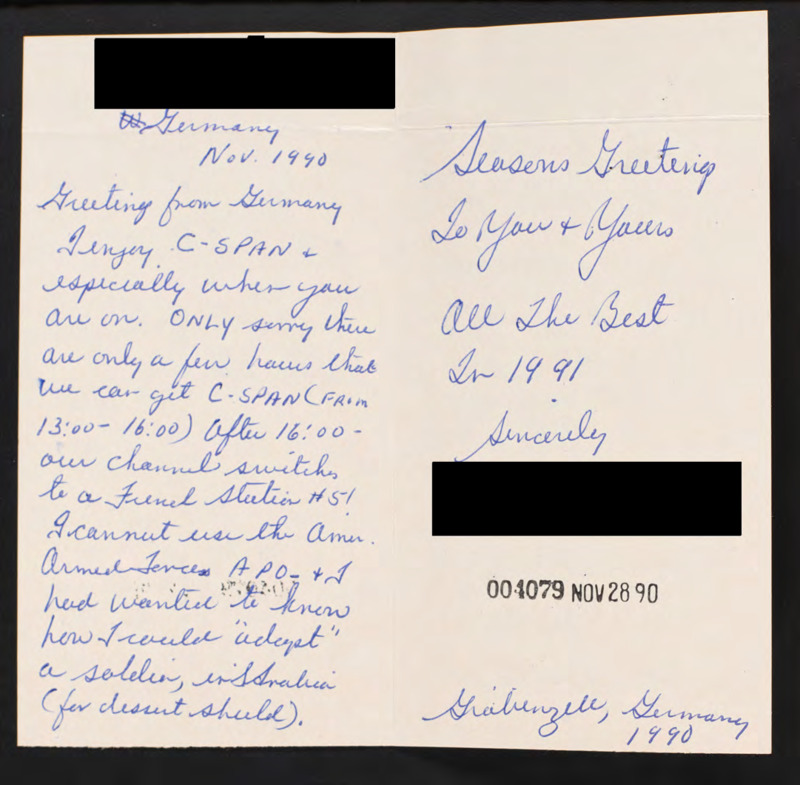 Germany
Nov. 1990
Greeting from Germany
I enjoy C-SPAN &
especially when you
are on. ONLY sorry there
are only a few hours that
we can get C-SPAN (FROM
13:00 - 16:00) After 16:00 -
our channel switches
to a French Station #5!
I cannut use the Amer.
Armed Forces APO - & I
had wanted to know
how I could "adopt"
a soldier, in S Arabia
(for dessert shield).
Seasons Greeting
To You & Yours
All The Best
In 1991
Sincerely
004079 NOV 28 90
Gröbenzell, Germany
1990